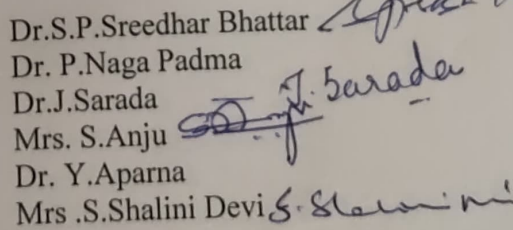 Dr.S.P.Sreedhar Bhattar
Dr. P.Naga Padma
Dr.J.Sarada J. Sarada
Mrs. S.Anju
Dr. Y.Aparna
Mrs .S.Shalini Devi S.